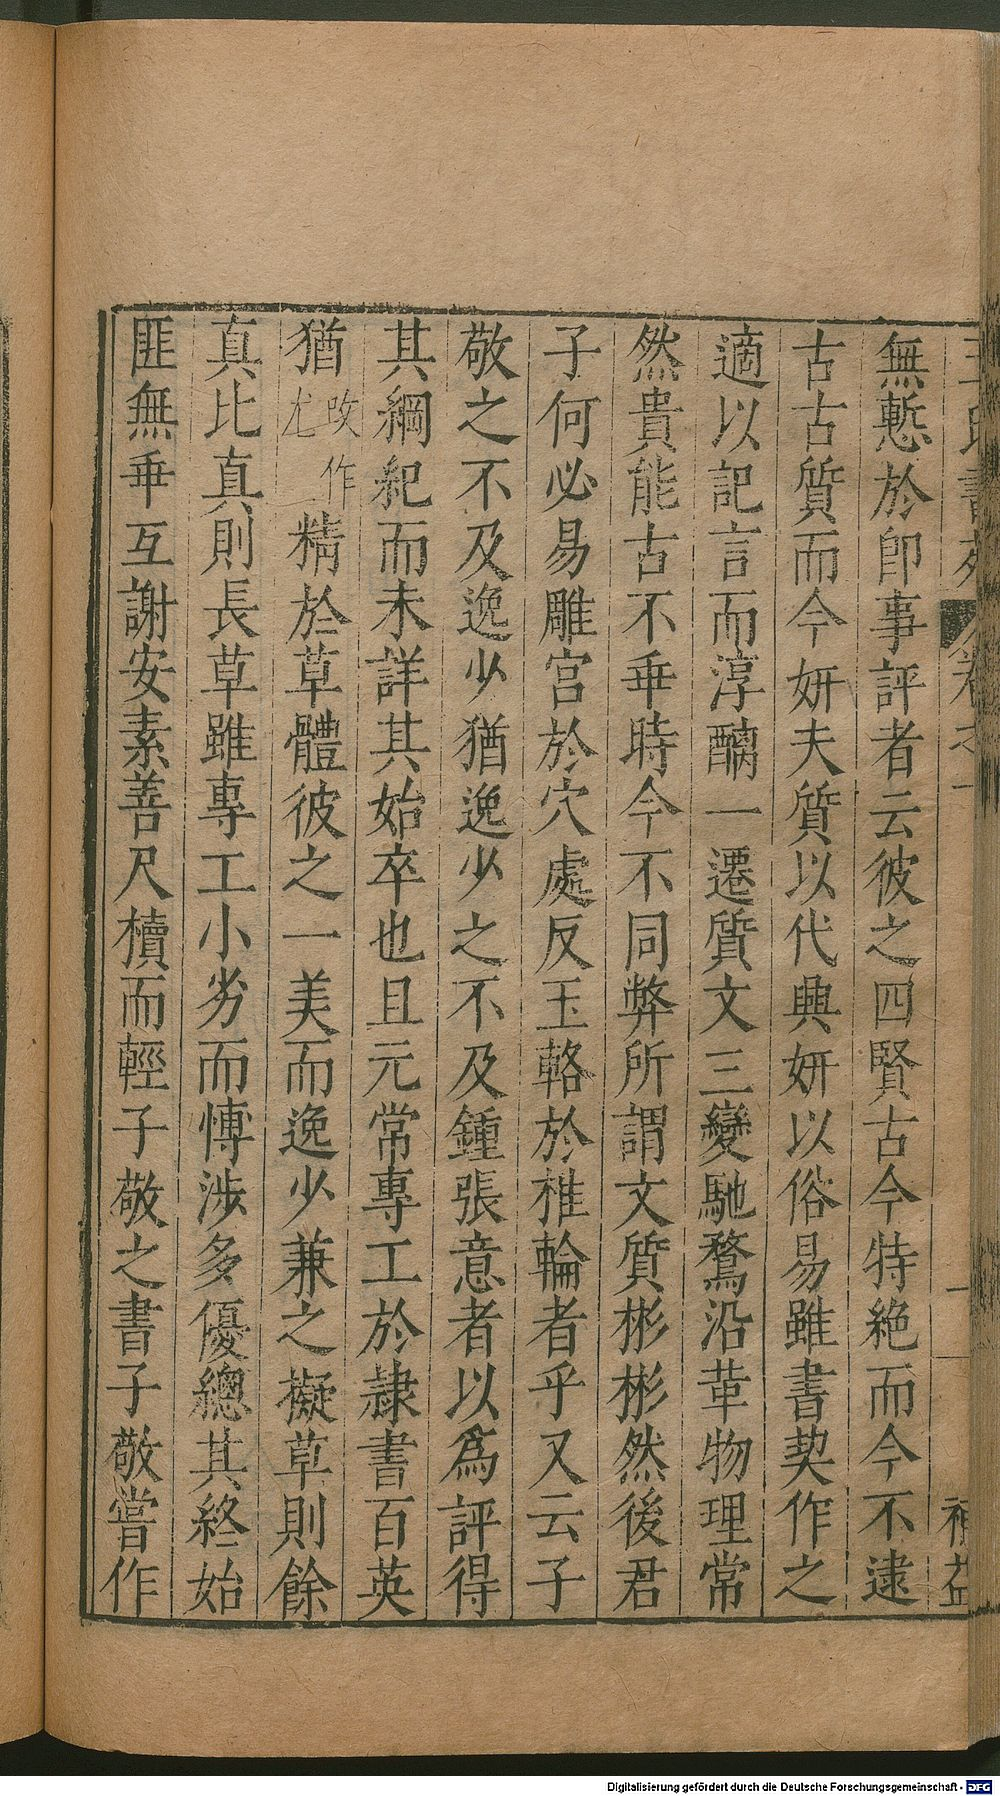 王氏書苑 卷之一 一 補益
無慙於卽事評者云彼之四賢古今特絶而今不逮
古古質而今妍夫質以代興妍以俗易雖書契作之
適以記言而淳醨一遷質文三變馳騖沿革物理常
然貴能古不乖時今不同弊所謂文質彬彬然後君
子何必易雕宮於穴處反玉輅於椎輪者乎又云子
敬之不及逸少猶逸少之不及鍾張意者以爲評得
其綱紀而未詳其始卒也且元常專工於隷書百英
猶改作尤精於草體彼之一美而逸少兼之擬草則餘
真比真則長草雖專工小劣而愽涉多優總其終始
匪無乖互謝安素善尺櫝而輕子敬之書子敬嘗作
Digitalisierung gefördert durch die Deutsche Forschungsgemeinschaft - DFG